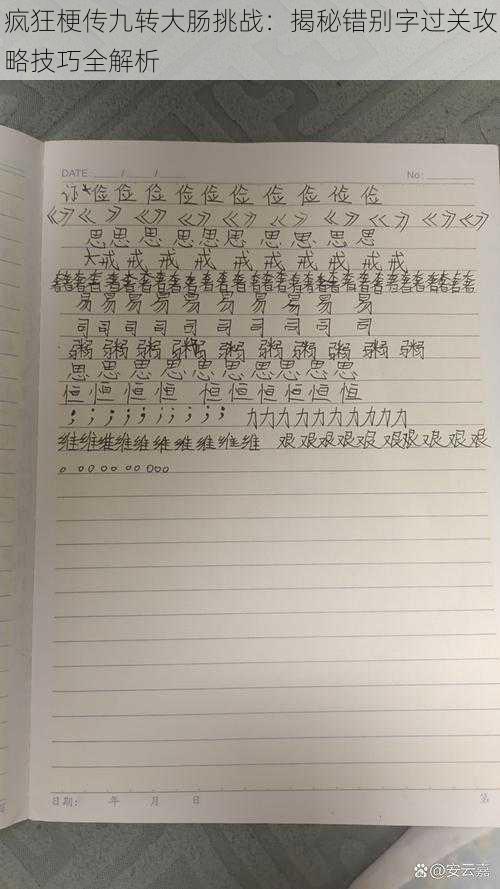 疯狂梗传九转大肠挑战：揭秘错别字过关攻
略技巧全解析
DATE / /
No:
俭俭 俭 俭俭 俭 俭 俭 俭 俭
《》《》 《》 《》 《》 《》 《》 《》 《》《》
思思思 思思思 思 思 思 思
戒 戒 戒 戒 戒 戒 戒 戒 戒 戒
易 易 易 易 易 易 易 易 易 易
司 司 司 司 司 司 司 司 司 司
粥 粥 粥 粥 粥 粥 粥 粥 粥 粥
思 思 思 思 思 思 思 思 思 思
恒恒 恒 恒 恒 恒 恒 恒 恒 恒
；；；；；；；；；； 力力力力力力力力力力
维维维维维维维维维维 艰艰艰艰艰艰艰艰艰艰
。。。。。。。。。。
日期： 年 月 日
@安云嘉